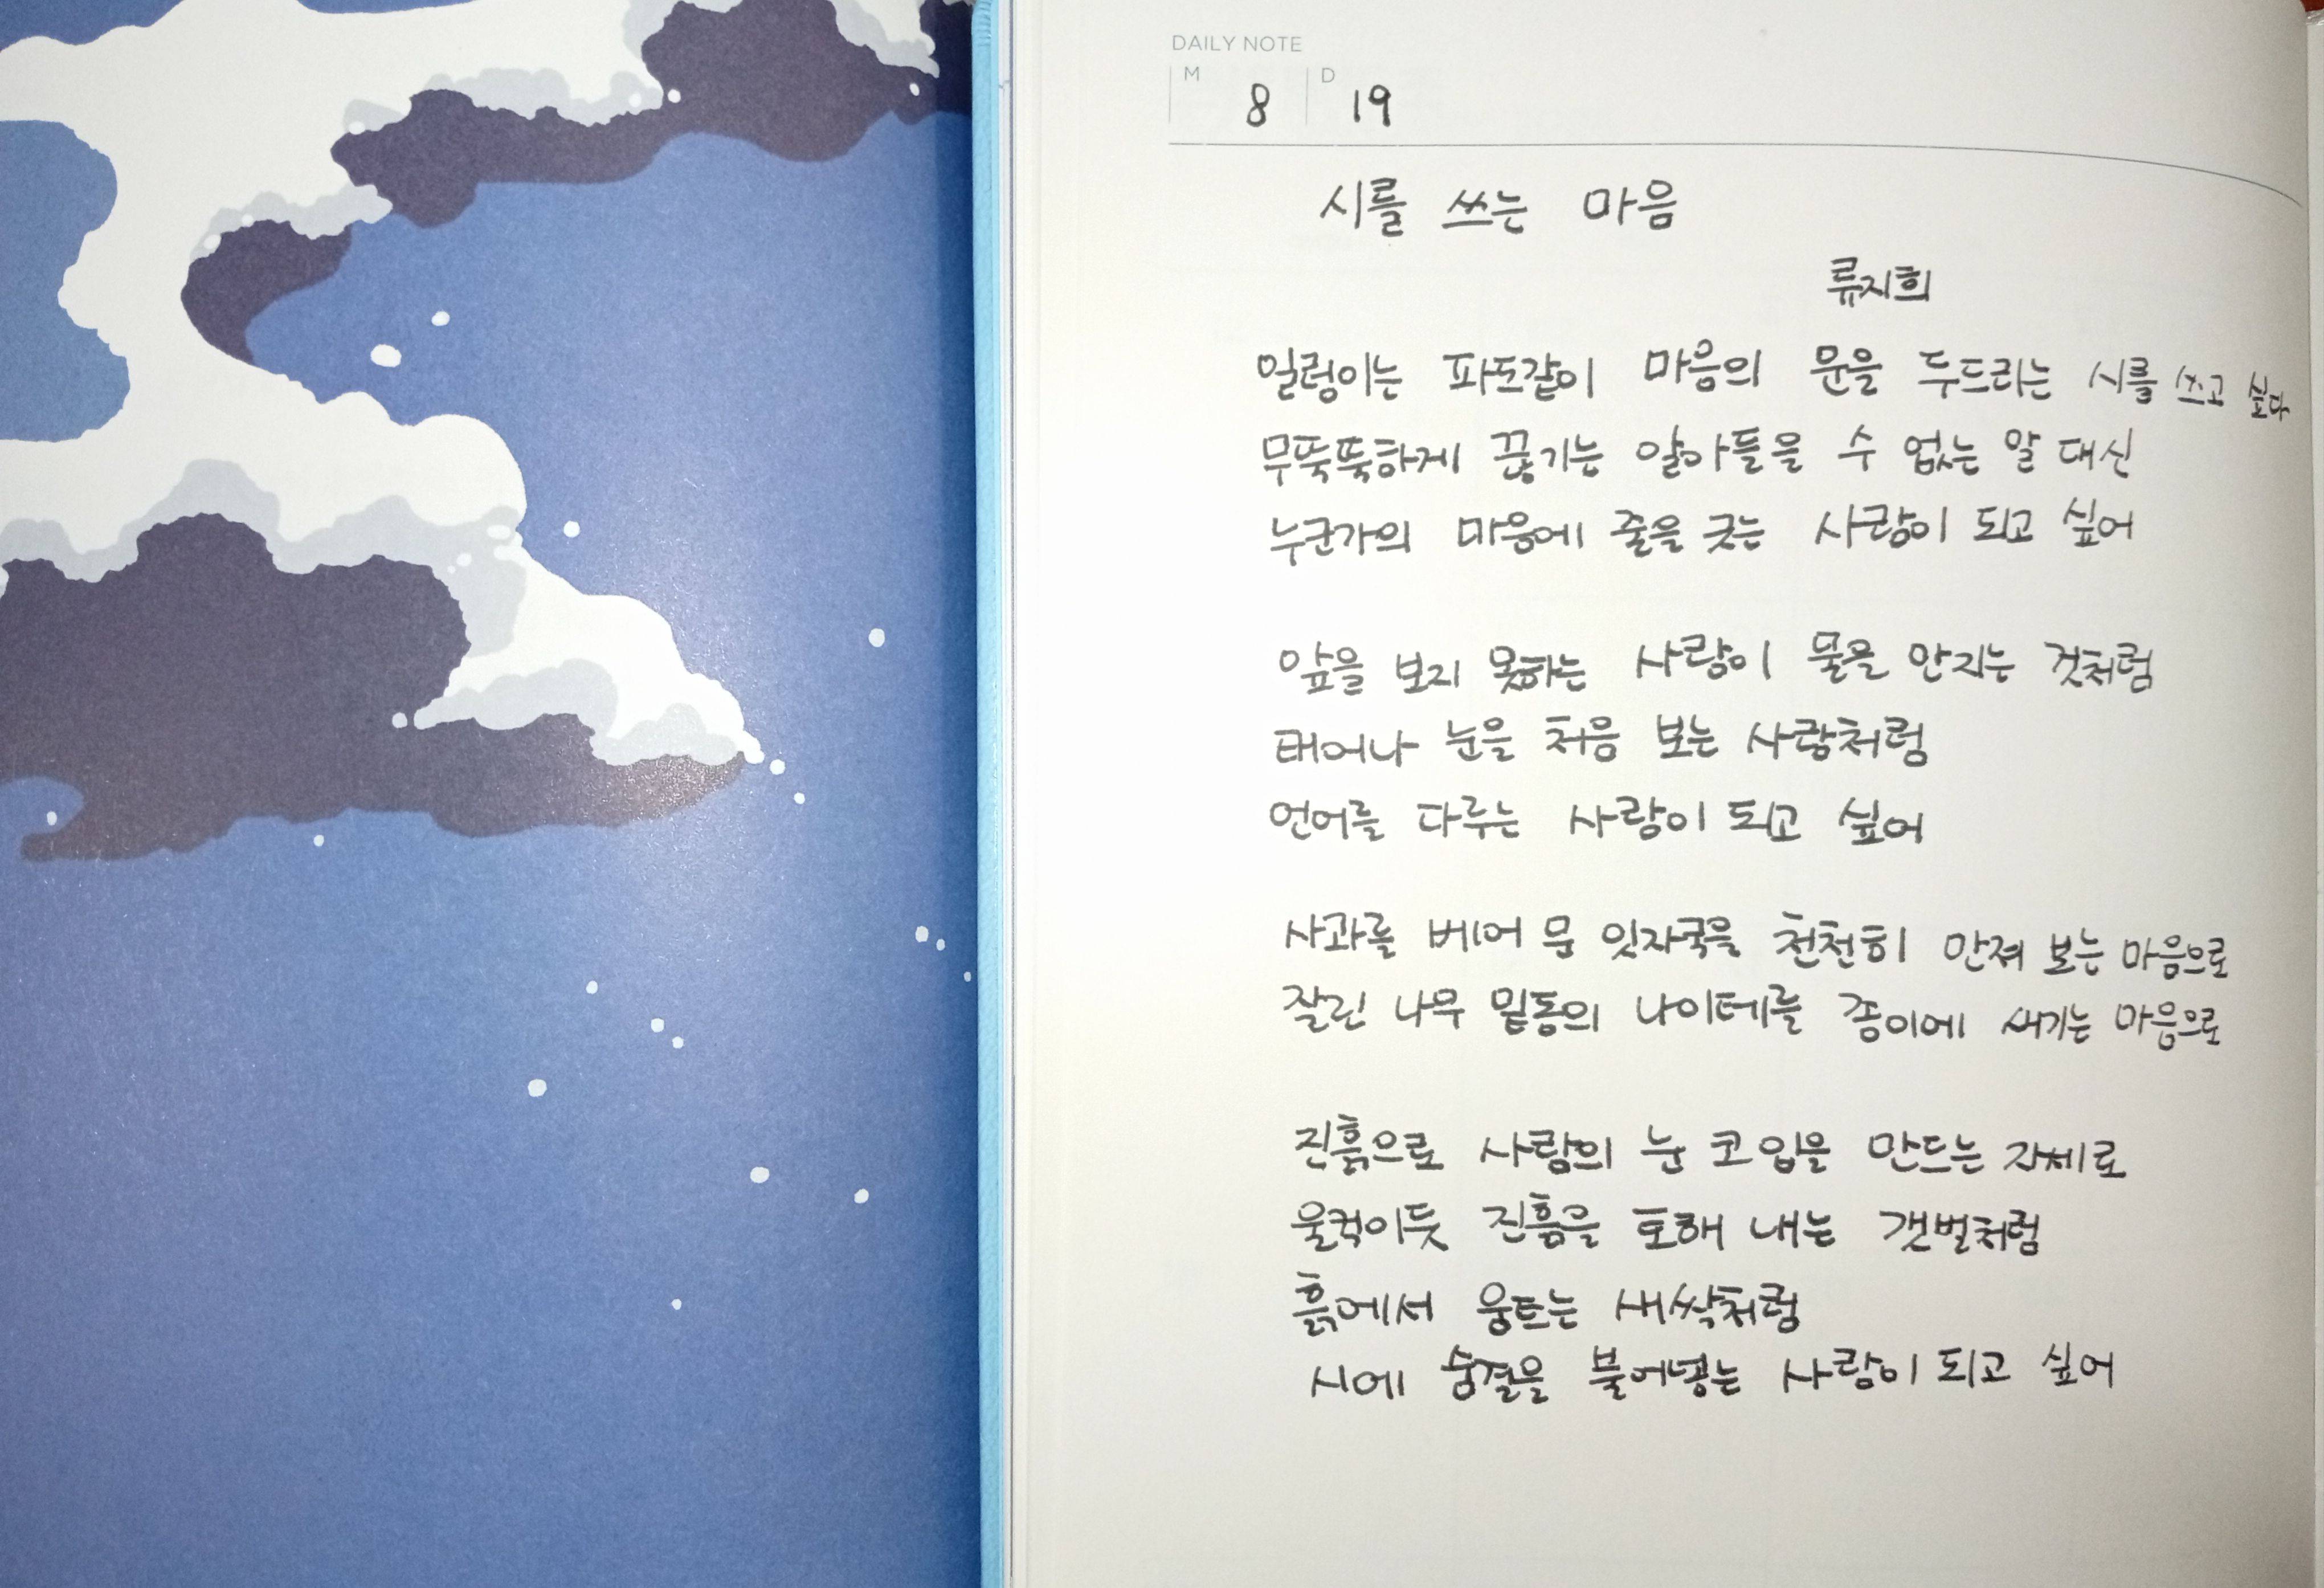 DAILY NOTE
M 8 D 19
시를 쓰는 마음
류지희
일렁이는 파도같이 마음의 문을 두드리는 시를 쓰고 싶다
무뚝뚝하게 끊기는 알아들을 수 없는 말 대신
누군가의 마음에 줄을 긋는 사람이 되고 싶어
앞을 보지 못하는 사람이 물을 만지는 것처럼
태어나 눈을 처음 보는 사람처럼
언어를 다루는 사람이 되고 싶어
사과를 베어 문 잇자국을 천천히 만져 보는 마음으로
잘린 나무 밑동의 나이테를 종이에 새기는 마음으로
진흙으로 사람의 눈 코 입을 만드는 자세로
울컥이듯 진흙을 토해 내는 갯벌처럼
흙에서 움트는 새싹처럼
시에 숨결을 불어넣는 사람이 되고 싶어